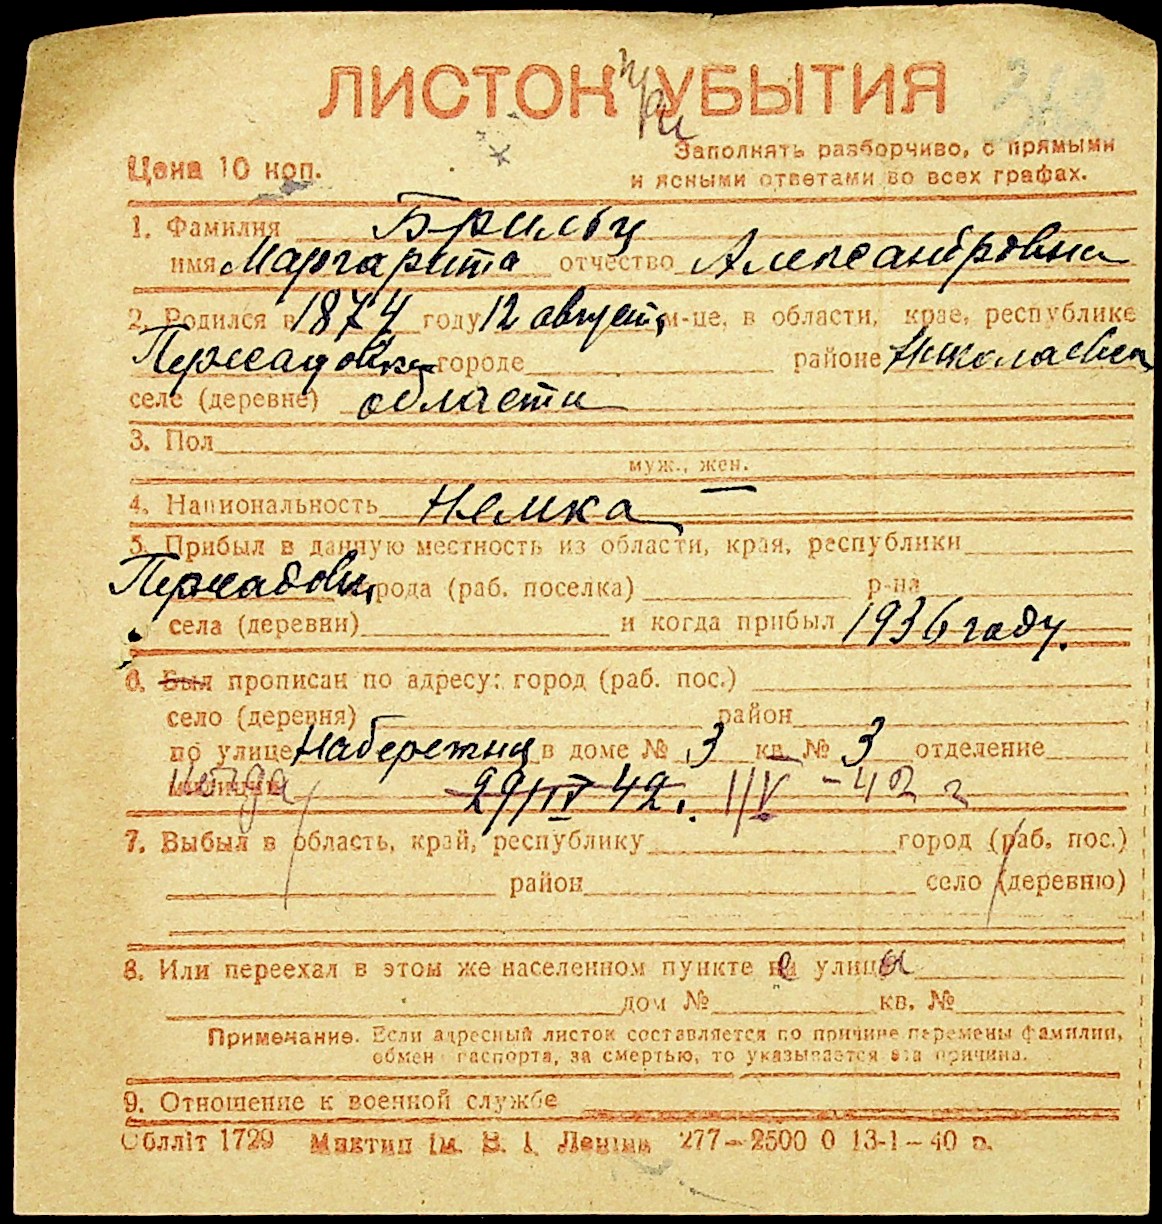 ЛИСТОК УБЫТИЯ
Цена 10 коп.
Заполнять разборчиво, с прямыми
и ясными ответами во всех графах.
1. Фамилия Брильц
имя Маргарита отчество Александровна
2. Родился в 1874 году 12 август м-це, в области, крае, республике
городе районе Николаевск
селе (деревне) области
3. Пол
муж., жен.
4. Национальность Немка
5. Прибыл в данную местность из области, края, республики
города (раб. поселка) р-на
села (деревни) и когда прибыл 1936 году.
6. Был прописан по адресу: город (раб. пос.)
село (деревня) район
по улице Набережна в доме № 3 кв. № 3 отделение
29/IV 42. 1/V - 42 г
7. Выбыл в область, край, республику город (раб. пос.)
район село (деревню)
8. Или переехал в этом же населенном пункте на улицу
дом № кв. №
Примечание. Если адресный листок составляется по причине перемены фамилии,
обмен паспорта, за смертью, то указывается эта причина.
9. Отношение к военной службе
Облліт 1729 Миктип ім. В. І. Леніна 277—2500 0 13-1—40 р.